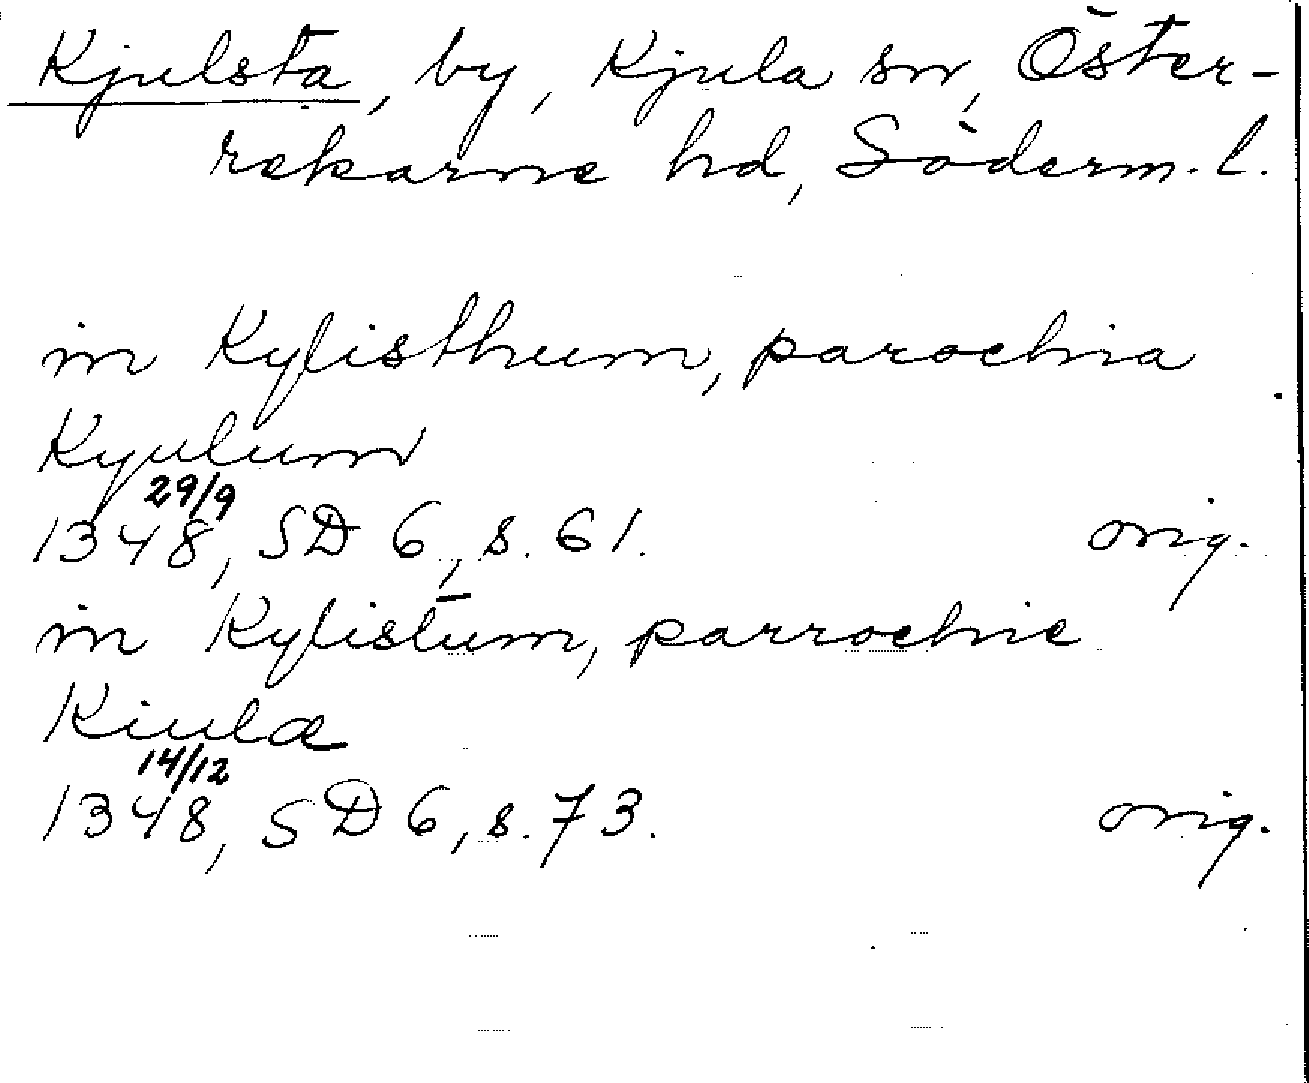 Kjulsta, by, Kjula sn, Öster-
rekarne hd, Söderm. l.
in Kylisthum, parochia
Kyulum
29/9
1348, SD 6, s. 61. orig.
in Kylistum, parrochie
Kiulæ
14/12
1348, SD 6, s. 73. orig.